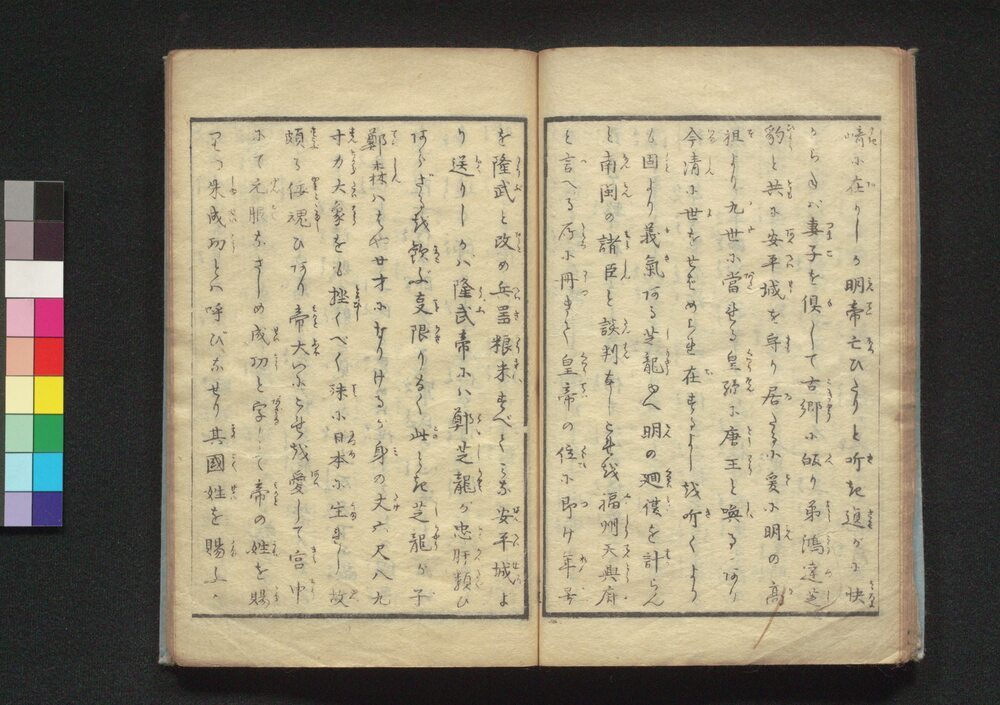 崎に在りしが明帝亡びたりと听き進が に快
からねバ妻子を倶して古郷に皈り弟鴻逵芝
豹と共に安平城を専り居たるに爰に明の高
祖より九世に當せる皇孫に唐王と喚るゝあり
今清に世をせばめられ在すよしを听くより
も固より義氣ある芝龍ゆへ明の廻復を計らん
と南閩の諸臣と談判なしこれを福州天興府
と言へる所に冊きて皇帝の位に即け年号
を隆武と改め兵噐粮米すべてミな安平城よ
り送りしかバ隆武帝にハ鄭芝龍が忠肝類ひ
あらざるを歓ぶ支限りなく此とき芝龍が子
鄭森ハはや廿才になりけるが身の丈六尺八九
寸力大象をも挫くべく殊に日本に生れし故
頗る倭魂ひあり帝大いにこれを愛して宮中
にて元服なさしめ成功と字して帝の姓を賜
りつ朱成功とハ呼びなせり其國姓を賜ふ